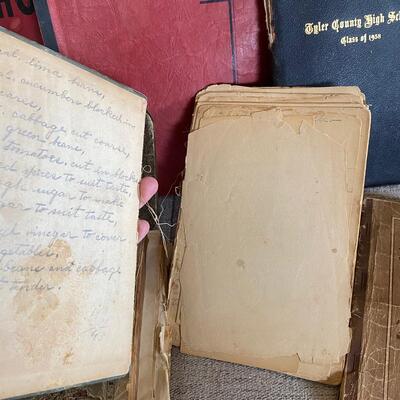 HO
Tyler County High Sch
Class of 1938
lima beans,
cucumbers blocked in
cabbage, cut coarse,
green beans,
tomatoes, cut in blocks
spices to suit taste
sugar to make
to suit taste
vinegar to cover
vegetables,
beans and cabbage
tender.